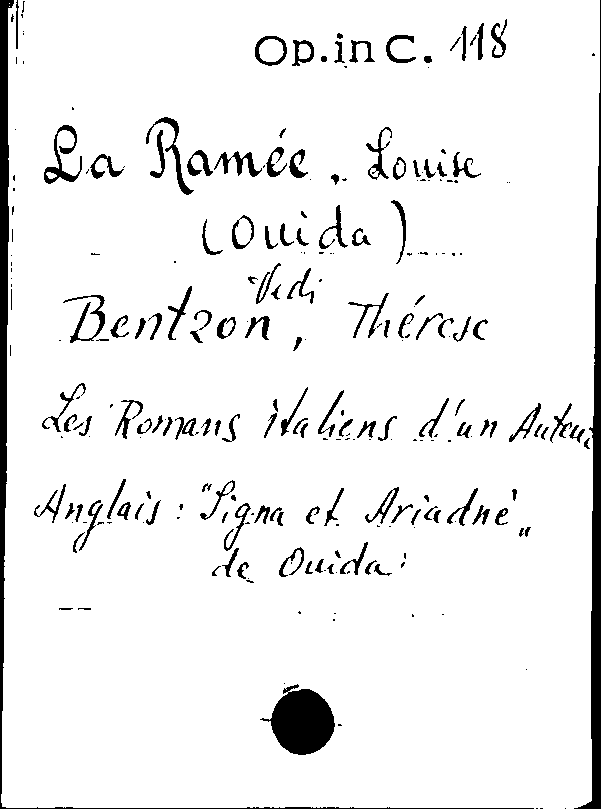 Op. in C. 118
La Ramée, Louise
(Ouida)
Vedi
Bentzon, Thérese
Les Romans italiens d'un Auteur
Anglais: "Signa et Ariadné„
de Ouida: